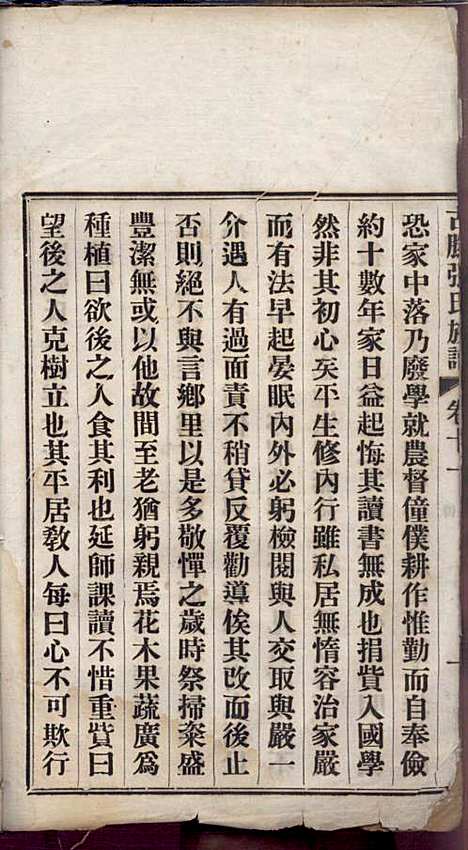 張氏族譜 卷十一
恐家中落乃廢學就農督僮僕耕作惟勤而自奉儉
約十數年家日益起悔其讀書無成也捐貲入國學
然非其初心矣平生修內行雖私居無惰容治家嚴
而有法早起晏眠內外必躬檢閱與人交取與嚴一
介遇人有過面責不稍貸反覆勸導俟其改而後止
否則絕不與言鄉里以是多敬憚之歲時祭掃粢盛
豐潔無或以他故間至老猶躬親焉花木果蔬廣為
種植曰欲後之人食其利也延師課讀不惜重貲曰
望後之人克樹立也其平居教人每曰心不可欺行